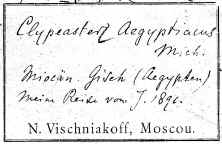 Clypeaster Aegyptiacus
Mich.
Miocän. Giseh (Aegypten)
Meine Reise vom J. 1896.
N. Vischniakoff, Moscou.